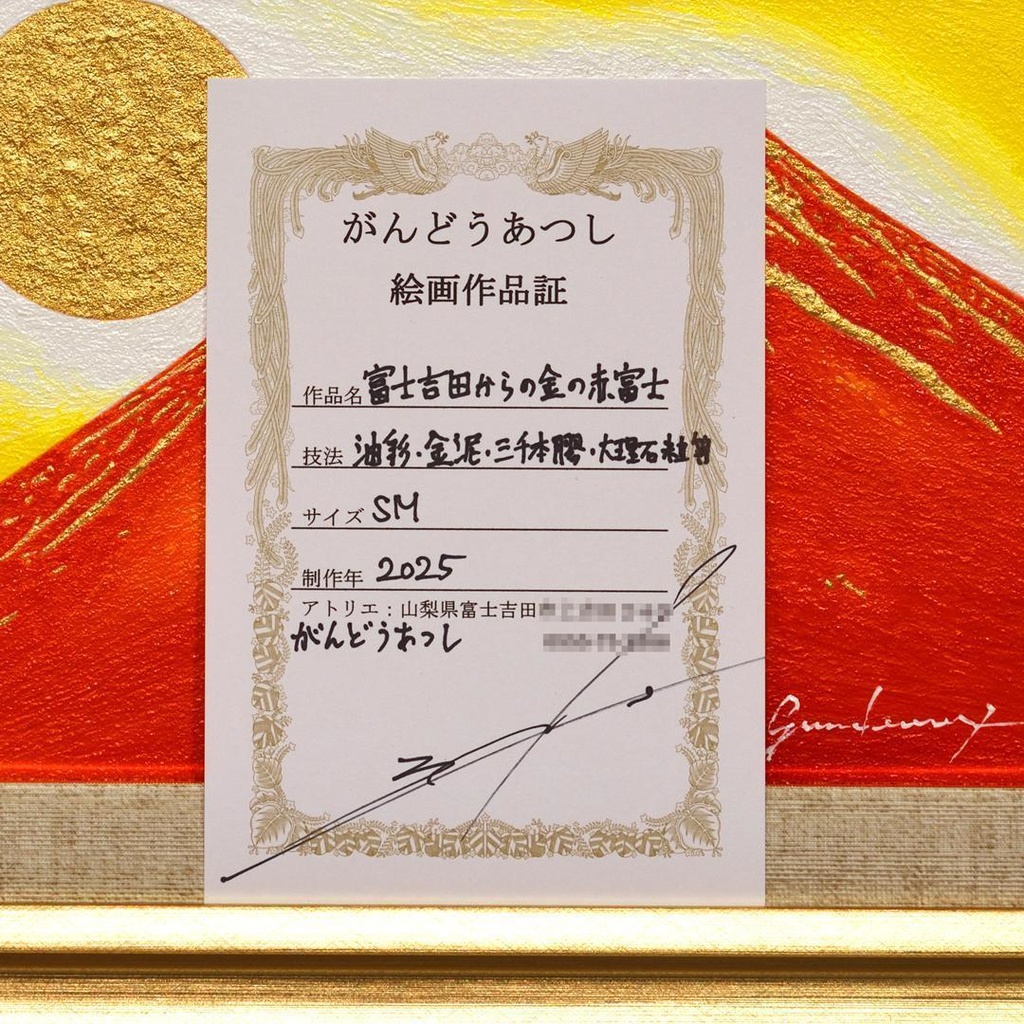 がんどうあつし
絵画作品証
作品名 富士吉田からの金の赤富士
技法 油彩・金泥・三千本膠・大理石粒
サイズ SM
制作年 2025
アトリエ：山梨県富士吉田
がんどうあつし